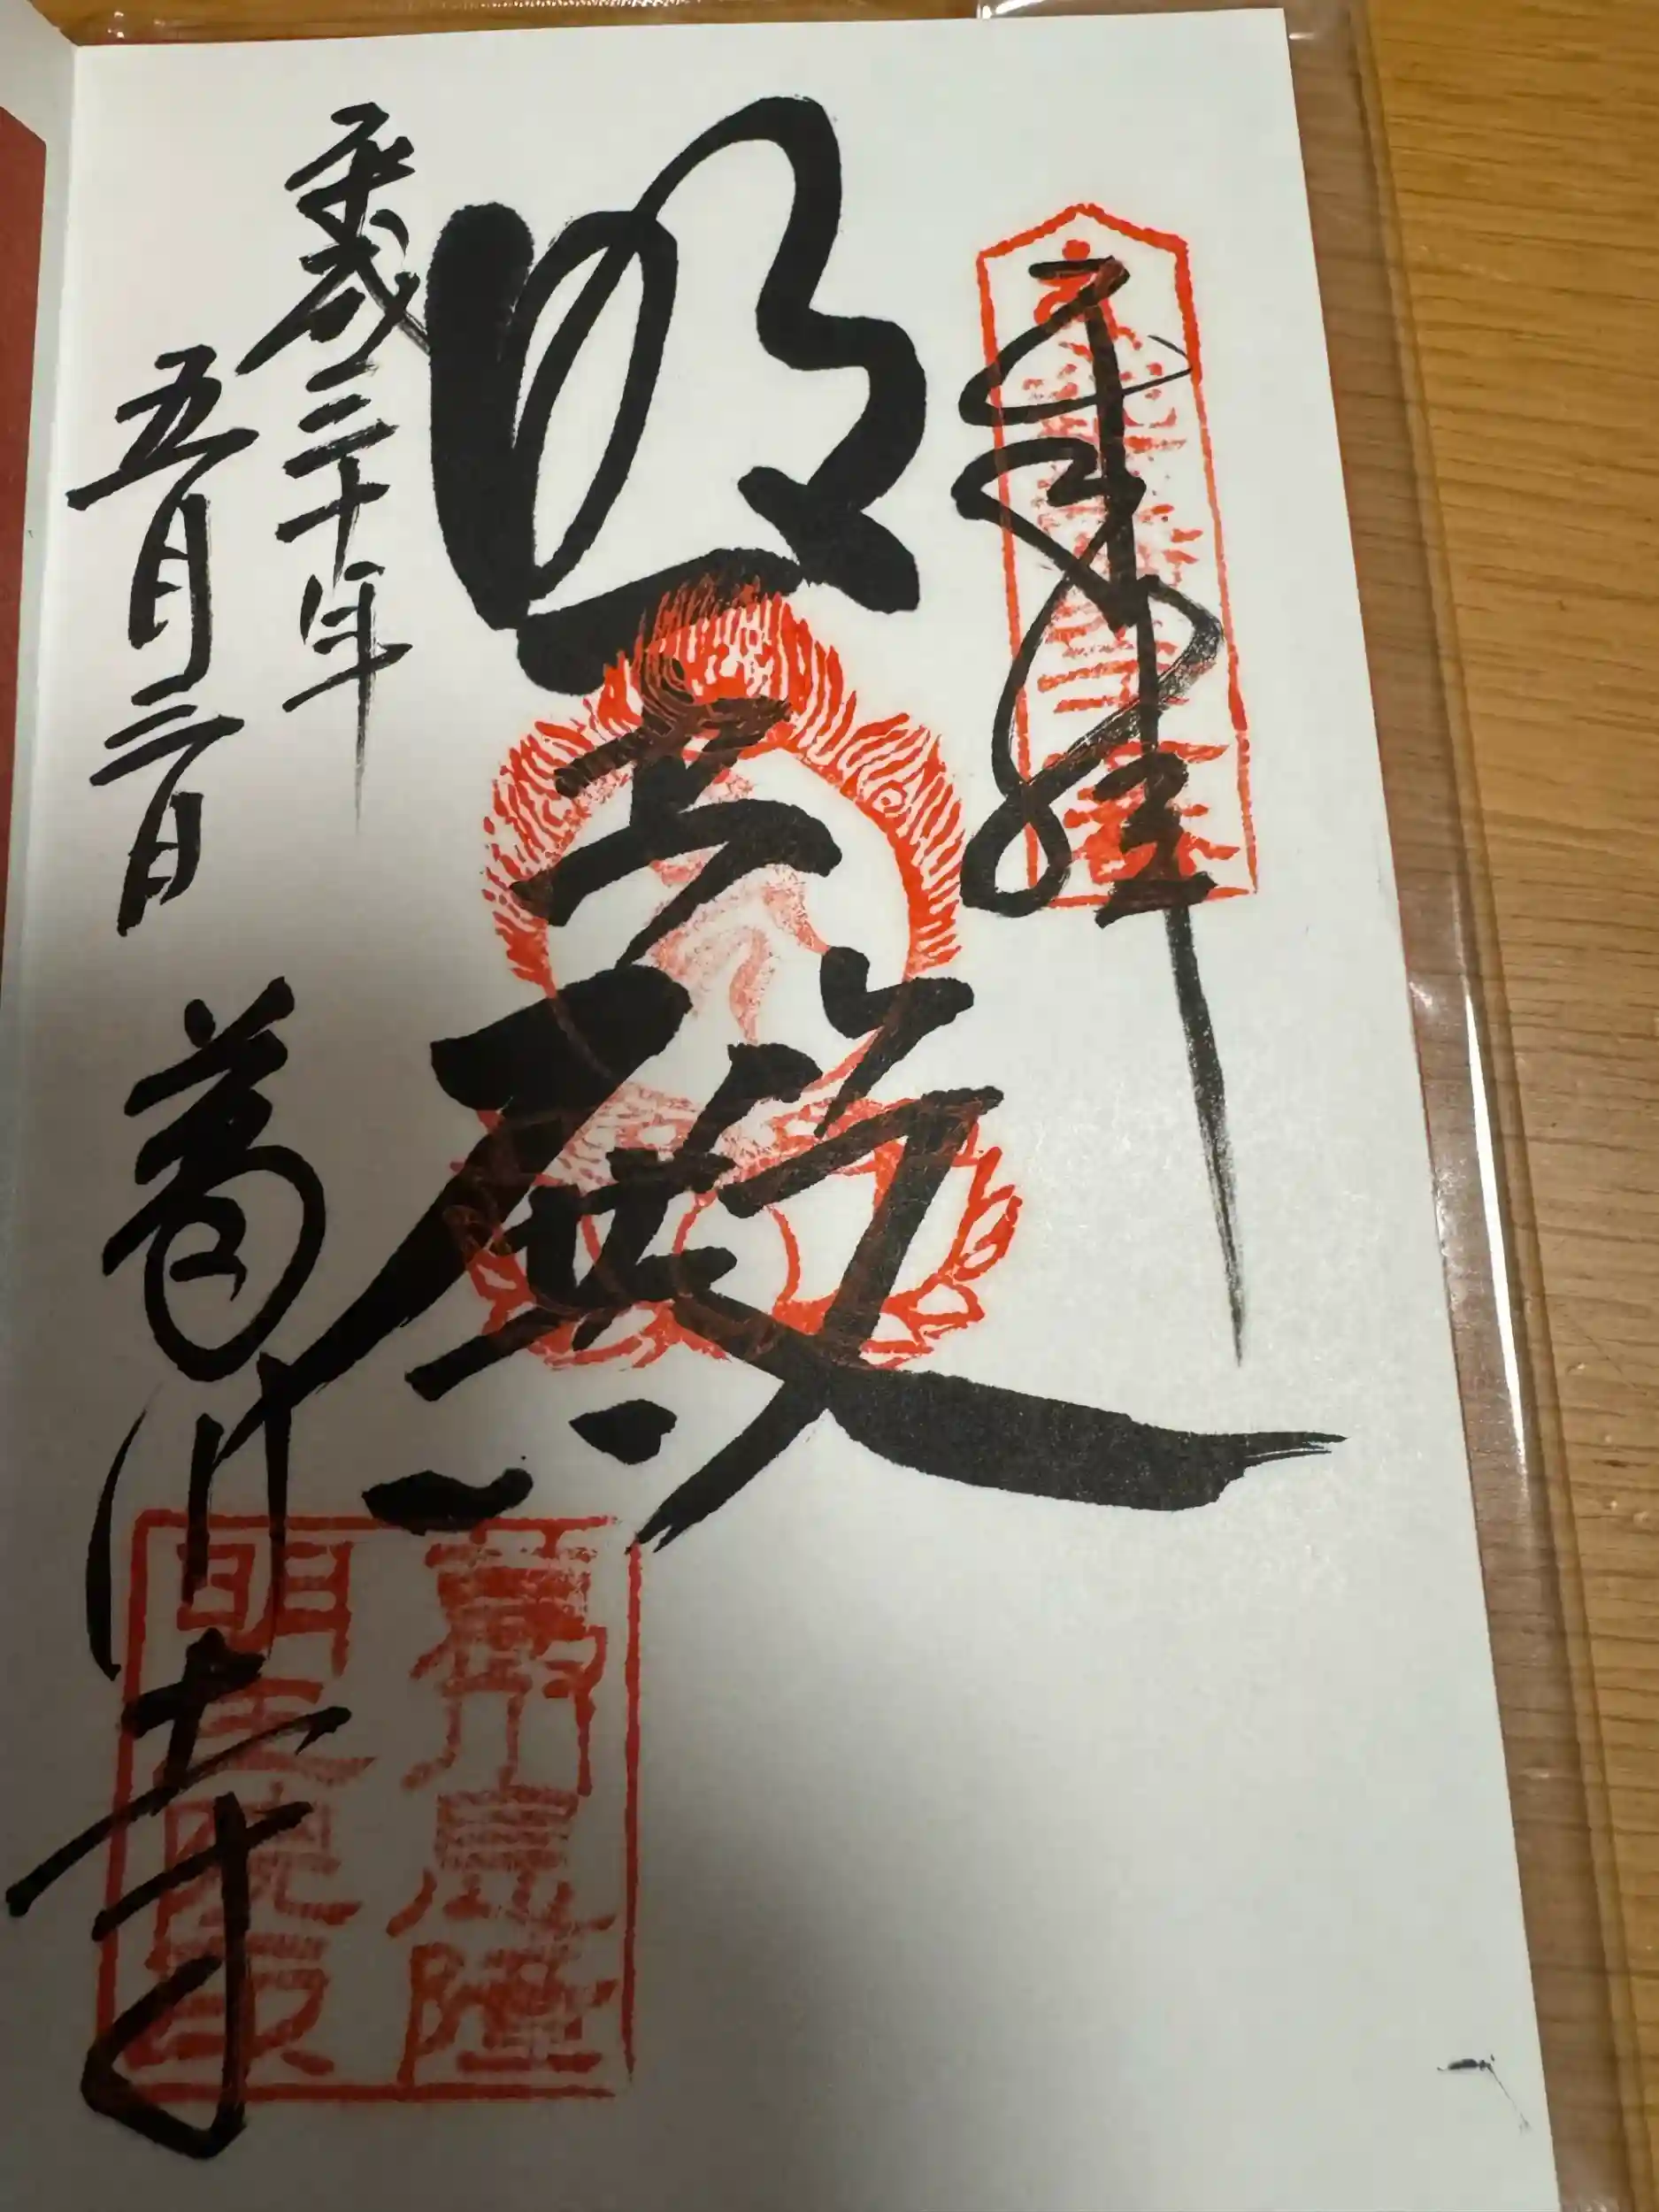 奉拝
明王殿
平成三十年
五月三日
葛川寺
葛川息障
明王院